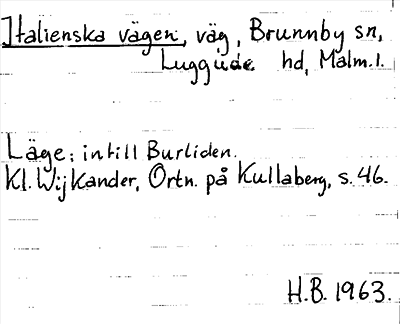 Italienska vägen, väg, Brunnby sn,
Luggude hd, Malm.l.
Läge: intill Burliden.
Kl. Wijkander, Ortn. på Kullaberg, s. 46.
H.B. 1963.